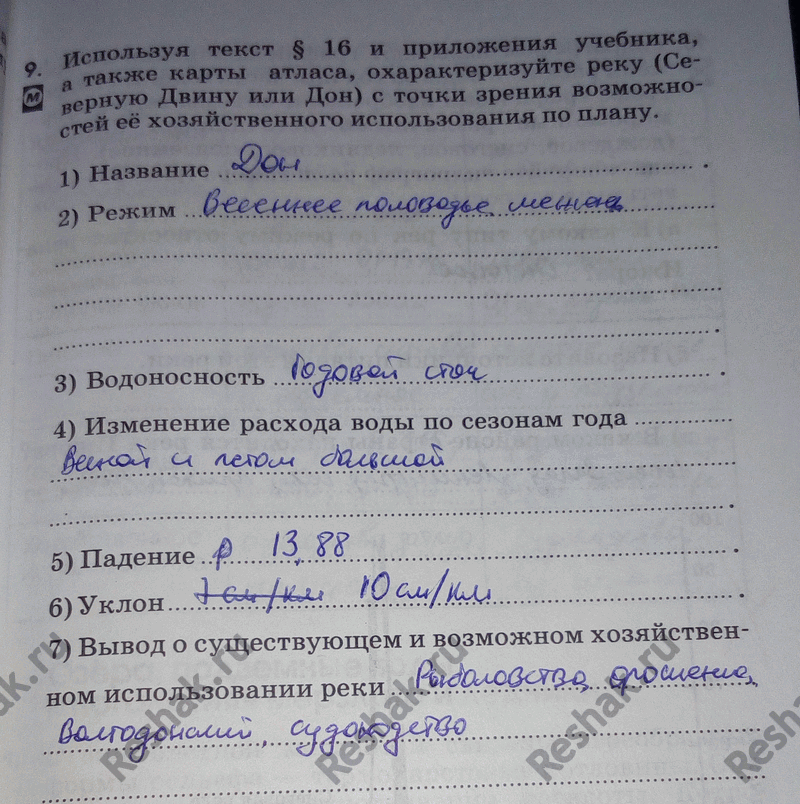 9. Используя текст § 16 и приложения учебника,
а также карты атласа, охарактеризуйте реку (Се-
М верную Двину или Дон) с точки зрения возможно-
стей её хозяйственного использования по плану.
1) Название Дон
2) Режим Весеннее половодье, межень
3) Водоносность Годовой сток
4) Изменение расхода воды по сезонам года
Весной и летом большой
5) Падение р 13,88
6) Уклон 7 см/км 10 см/км
7) Вывод о существующем и возможном хозяйствен-
ном использовании реки Рыболовство, орошение,
Волгодонский, судоходство
Reshak.ru
Reshak.ru
Reshak.ru
Reshak.ru